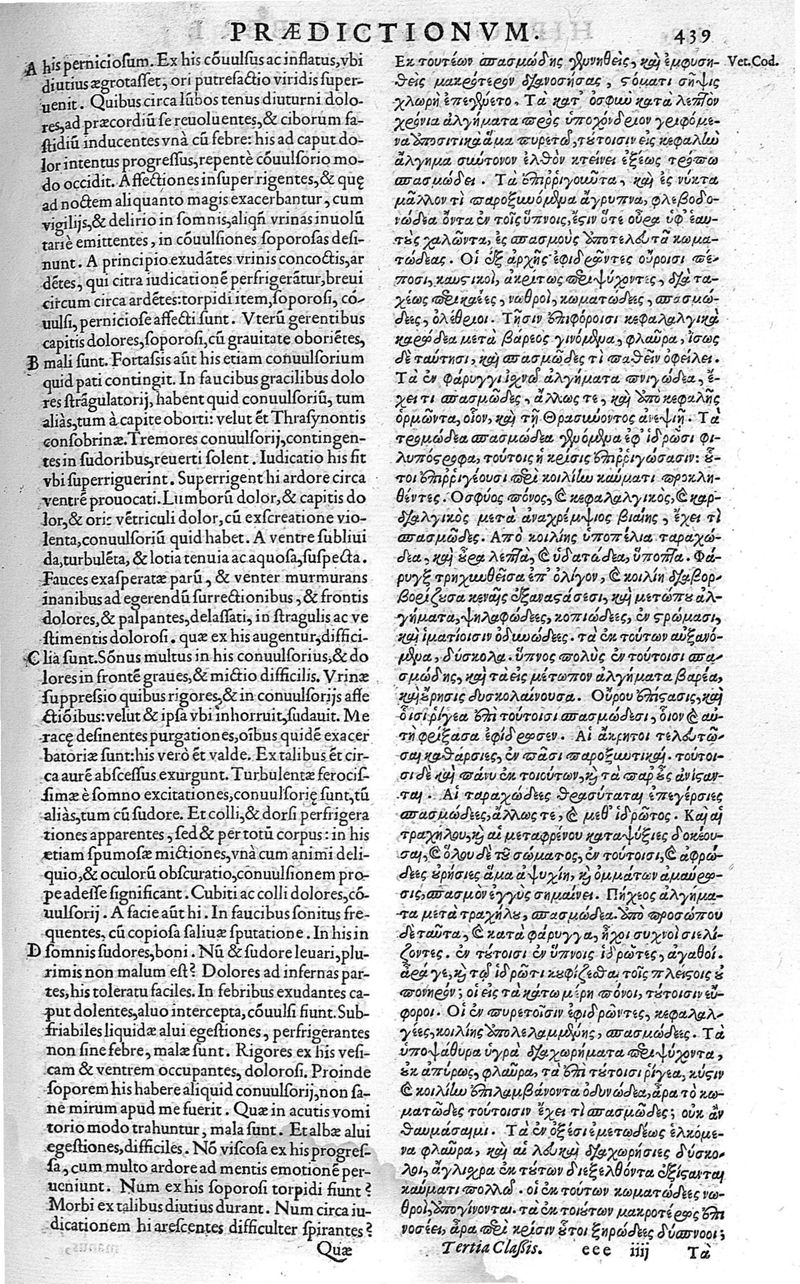 PRÆDICTIONVM.
439
A his perniciosum. Ex his cõuulsus ac inflatus, vbi
diutius ægrotasset, ori putrefactio viridis super-
uenit. Quibus circa lũbos tenus diuturni dolo-
res, ad præcordiũ se reuoluentes, & ciborum fa-
stidiũ inducentes vnà cũ febre: his ad caput do-
lor intentus progressus, repentè cõuulsorio mo-
do occidit. Affectiones insuper rigentes, & quę
ad noctem aliquanto magis exacerbantur, cum
vigilijs, & delirio in somnis, aliqñ vrinas inuolũ
tariè emittentes, in cõuulsiones soporosas desi-
nunt. A principio exudãtes vrinis concoctis, ar
dẽtes, qui citra iudicationẽ perfrigerãtur, breui
circum circa ardẽtes: torpidi item, soporosi, cõ-
uulsi, perniciose affecti sunt. Vterũ gerentibus
capitis dolores, soporosi, cũ grauitate oboriẽtes,
B mali sunt. Fortassis aũt his etiam conuulsorium
quid pati contingit. In faucibus gracilibus dolo
res strãgulatorij, habent quid conuulsoriũ, tum
aliàs, tum à capite oborti: velut & Thrasynontis
consobrinæ. Tremores conuulsorij, contingen-
tes in sudoribus, reuerti solent. Iudicatio his fit
vbi superriguerint. Superrigent hi ardore circa
ventrẽ prouocati. Lumborũ dolor, & capitis do
lor, & oris vẽtriculi dolor, cũ exscreatione vio-
lenta, conuulsoriũ quid habet. A ventre subliui
da, turbulẽta, & lotia tenuia ac aquosa, suspecta.
Fauces exasperatæ parũ, & venter murmurans
inanibus ad egerendũ surrectionibus, & frontis
dolores, & palpantes, delassati, in stragulis ac ve
stimentis dolorosi. quæ ex his augentur, diffici-
C lia sunt. Sõnus multus in his conuulsorius; & do
lores in frontẽ graues, & mictio difficilis. Vrinæ
suppressio quibus rigores, & in conuulsorijs affe
ctiõibus: velut & ipsa vbi inhorruit, sudauit. Me
racę desinentes purgationes, oĩbus quidẽ exacer
batoriæ sunt: his verò et valde. Ex talibus et cir-
ca aurẽ abscessus exurgunt. Turbulentæ ferocis-
simæ è somno excitationes, conuulsorię sunt, tũ
aliàs, tum cũ sudore. Et colli, & dorsi perfrigera
tiones apparentes, sed & per totũ corpus: in his
etiam spumosæ mictiones, vnà cum animi deli-
quio, & oculorũ obscuratio, conuulsionem pro-
pe adesse significant. Cubiti ac colli dolores, cõ-
uulsorij. A facie aũt hi. In faucibus sonitus fre-
quentes, cũ copiosa saliuæ sputatione. In his in
D somnis sudores, boni. Nũ & sudore leuari, plu-
rimis non malum est? Dolores ad infernas par-
tes, his toleratu faciles. In febribus exudantes ca-
put dolentes, aluo intercepta, cõuulsi fiunt. Sub-
friabiles liquidæ alui egestiones, perfrigerantes
non sine febre, malæ sunt. Rigores ex his vesi-
cam & ventrem occupantes, dolorosi. Proinde
soporem his habere aliquid conuulsorij, non sa-
ne mirum apud me fuerit. Quæ in acutis vomi
torio modo trahuntur, mala sunt. Et albæ alui
egestiones, difficiles. Nõ viscosa ex his progres-
sa, cum multo ardore ad mentis emotionẽ per-
ueniunt. Num ex his soporosi torpidi fiunt?
Morbi ex talibus diutius durant. Num circa iu-
dicationem hi arescentes difficulter spirantes?
Quæ
Ἐκ τουτέων σπασμώδης γυνηθεὶς, καὶ ἐμφυση- Vet. Cod.
θεὶς μακρότερον διανοσήσας, στόματι σῆψις
χλωρὴ ἐπεγένετο. Τὰ κατ' ὀσφὺν κατὰ λεπτὸν
χρόνια ἀλγήματα πρὸς ὑποχόνδριον γριφόμε-
να ἀποσιτικὰ ἅμα πυρετῷ, τούτοισιν εἰς κεφαλὴν
ἄλγημα σύντονον ἐλθὸν κτείνει ἐξέως τρόπῳ
σπασμώδει. Τὰ ἐπιῤῥιγοῦντα, καὶ ἐς νύκτα
μᾶλλον τὶ παροξυνόμενα ἄγρυπνα, φλεβοδο-
νώδεα ὄντα ἐν τοῖς ὕπνοις, ἔστιν ὅτε οὖρα ὑφ' ἑαυ-
τὸς χαλῶντα, ἐς σπασμοὺς ἀποτελευτᾶ κωμα-
τώδεας. Οἱ ἐξ ἀρχῆς ἐφιδρῶντες οὔροισι πέ-
ποσι, καυστικοὶ, ἀκρίτως περιψύχοντες, διὰ τα-
χέως περικαέες, νωθροὶ, κωματώδεες, σπασμώ-
δεες, ὀλέθριοι. Τῇσιν ἐπιφόροισι κεφαλαλγικὰ
καρώδεα μετὰ βάρεος γινόμενα, φλαῦρα, ἴσως
δὲ ταύτῃσι, καὶ σπασμώδες τὶ παθεῖν ὀφείλει.
Τὰ ἐν φάρυγγι ἰσχνῷ ἀλγήματα πνιγώδεα, ἔ-
χει τι σπασμῶδες, ἄλλως τε, καὶ ἀπὸ κεφαλῆς
ὁρμῶντα, οἷον, καὶ τῇ Θρασυνοντος ἀνεψιῇ. Τὰ
τρομώδεα σπασμώδεα γενόμενα ἐφ' ἱδρῶσι φι-
λυπόστροφα, τούτοις ἡ κρίσις ἐπιῤῥιγώσασιν: οὗ-
τοι ἐπιῤῥιγέουσι περὶ κοιλίην καύματι προκλη-
θέντες. Ὀσφύος πόνος, & κεφαλαλγικὸς, & καρ-
διαλγικὸς μετὰ ἀναχρέμψιος βιαίης, ἔχει τὶ
σπασμῶδες. Ἀπὸ κοιλίης ὑποπέλια ταραχώ-
δεα, καὶ οὖρα λεπτὰ, & ὑδατώδεα, ὕποπτα. Φά-
ρυγξ τρηχυνθεῖσα ἐπ' ὀλίγον, & κοιλίη διαβορ-
βορίζουσα κεναῖς ἐξαναστάσεσι, καὶ μετώπου ἀλ-
γήματα, ψηλαφώδεες, κοπιώδεες, ἐν στρώμασι,
καὶ ἱματίοισιν ὀδυνώδεες. τὰ ἐκ τούτων αὐξανό-
μενα, δύσκολα. ὕπνος πολὺς ἐν τούτοισι σπα-
σμώδης, καὶ τὰ εἰς μέτωπον ἀλγήματα βαρέα,
καὶ οὔρησις δυσκολαίνουσα. Οὔρου ἐπίστασις, καὶ
οἷσι ῥίγεα ἐπὶ τούτοισι σπασμώδεσι, οἷον & αὐ-
τὴ φρίξασα ἐφίδρωσεν. Αἱ ἄκρητοι τελευτῶ-
σαι καθάρσιες, ἐν πᾶσι παροξυντικαὶ. τούτοι-
σι δὲ καὶ πάνυ ἐκ τοιούτων, καὶ τὰ παρ' οὖς ἀνίσταν-
ται. Αἱ ταραχώδεες θρασύταται ἐπεγέρσιες
σπασμώδεες, ἄλλως τε, & μεθ' ἱδρῶτος. Καὶ αἱ
τραχήλου, καὶ αἱ μεταφρένου καταψύξιες δοκέου-
σαι, & ὅλου δὲ τοῦ σώματος, ἐν τούτοισι, & ἀφρώ-
δεες οὐρήσιες ἅμα ἀψυχίῃ, καὶ ὀμμάτων ἀμαύρω-
σις, σπασμὸν ἐγγὺς σημαίνει. Πήχεος ἀλγήμα-
τα μετὰ τραχήλου, σπασμώδεα. ἀπὸ προσώπου
δὲ ταῦτα, & κατὰ φάρυγγα, ἦχοι συχνοὶ σιελί-
ζοντες. ἐν τούτοισι ἐν ὕπνοις ἱδρῶτες, ἀγαθοί.
ἆρά γε, καὶ τῷ ἱδρῶτι κουφίζεσθαι τοῖς πλείστοις οὐ
πονηρόν; οἱ εἰς τὰ κάτω μέρη πόνοι, τούτοισιν εὔ-
φοροι. Οἱ ἐν πυρετοῖσιν ἐφιδρῶντες, κεφαλαλ-
γέες, κοιλίης ἀπολελαμμένης, σπασμώδεες. Τὰ
ὑποψάθυρα ὑγρὰ διαχωρήματα περιψύχοντα,
οὐκ ἀπύρως, φλαῦρα, τὰ ἐπὶ τούτοισι ῥίγεα, κύστιν
& κοιλίην ἐπιλαμβάνοντα ὀδυνώδεα, ἆρα τὸ κω-
ματῶδες τούτοισιν ἔχει τὶ σπασμῶδες; οὐκ ἂν
θαυμάσαιμι. Τὰ ἐν ὀξέσι ἐμετωδέως ἑλκόμε-
να φλαῦρα, καὶ αἱ λευκαὶ διαχωρήσιες δύσκο-
λοι, ἄγλισχρα ἐκ τούτων διεξελθόντα ἐξίσταται
καύματι πολλῷ. οἱ ἐκ τούτων κωματώδεες νω-
θροὶ, ἀπογίνονται. τὰ ἐκ τοιούτων μακροτέρως ἐπι
νοσέει, ἆρα περὶ κρίσιν οὗτοι ξηρώδεες δύσπνοοι;
Tertia Classis. eee iiij Τὰ